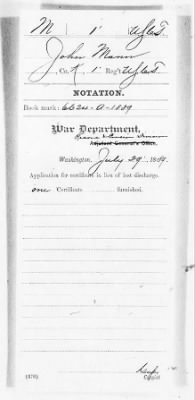 M 1 U.S.C.T.
John Mann
, Co. K, 1 Reg't U.S.C.T.
NOTATION.
Book mark: 6624-A-1889
War Department,
Record & Pension Division
Adjutant General's Office,
Washington, July 29, 1889.
Application for certificate in lieu of lost discharge.
one Certificate furnished.
Copyist